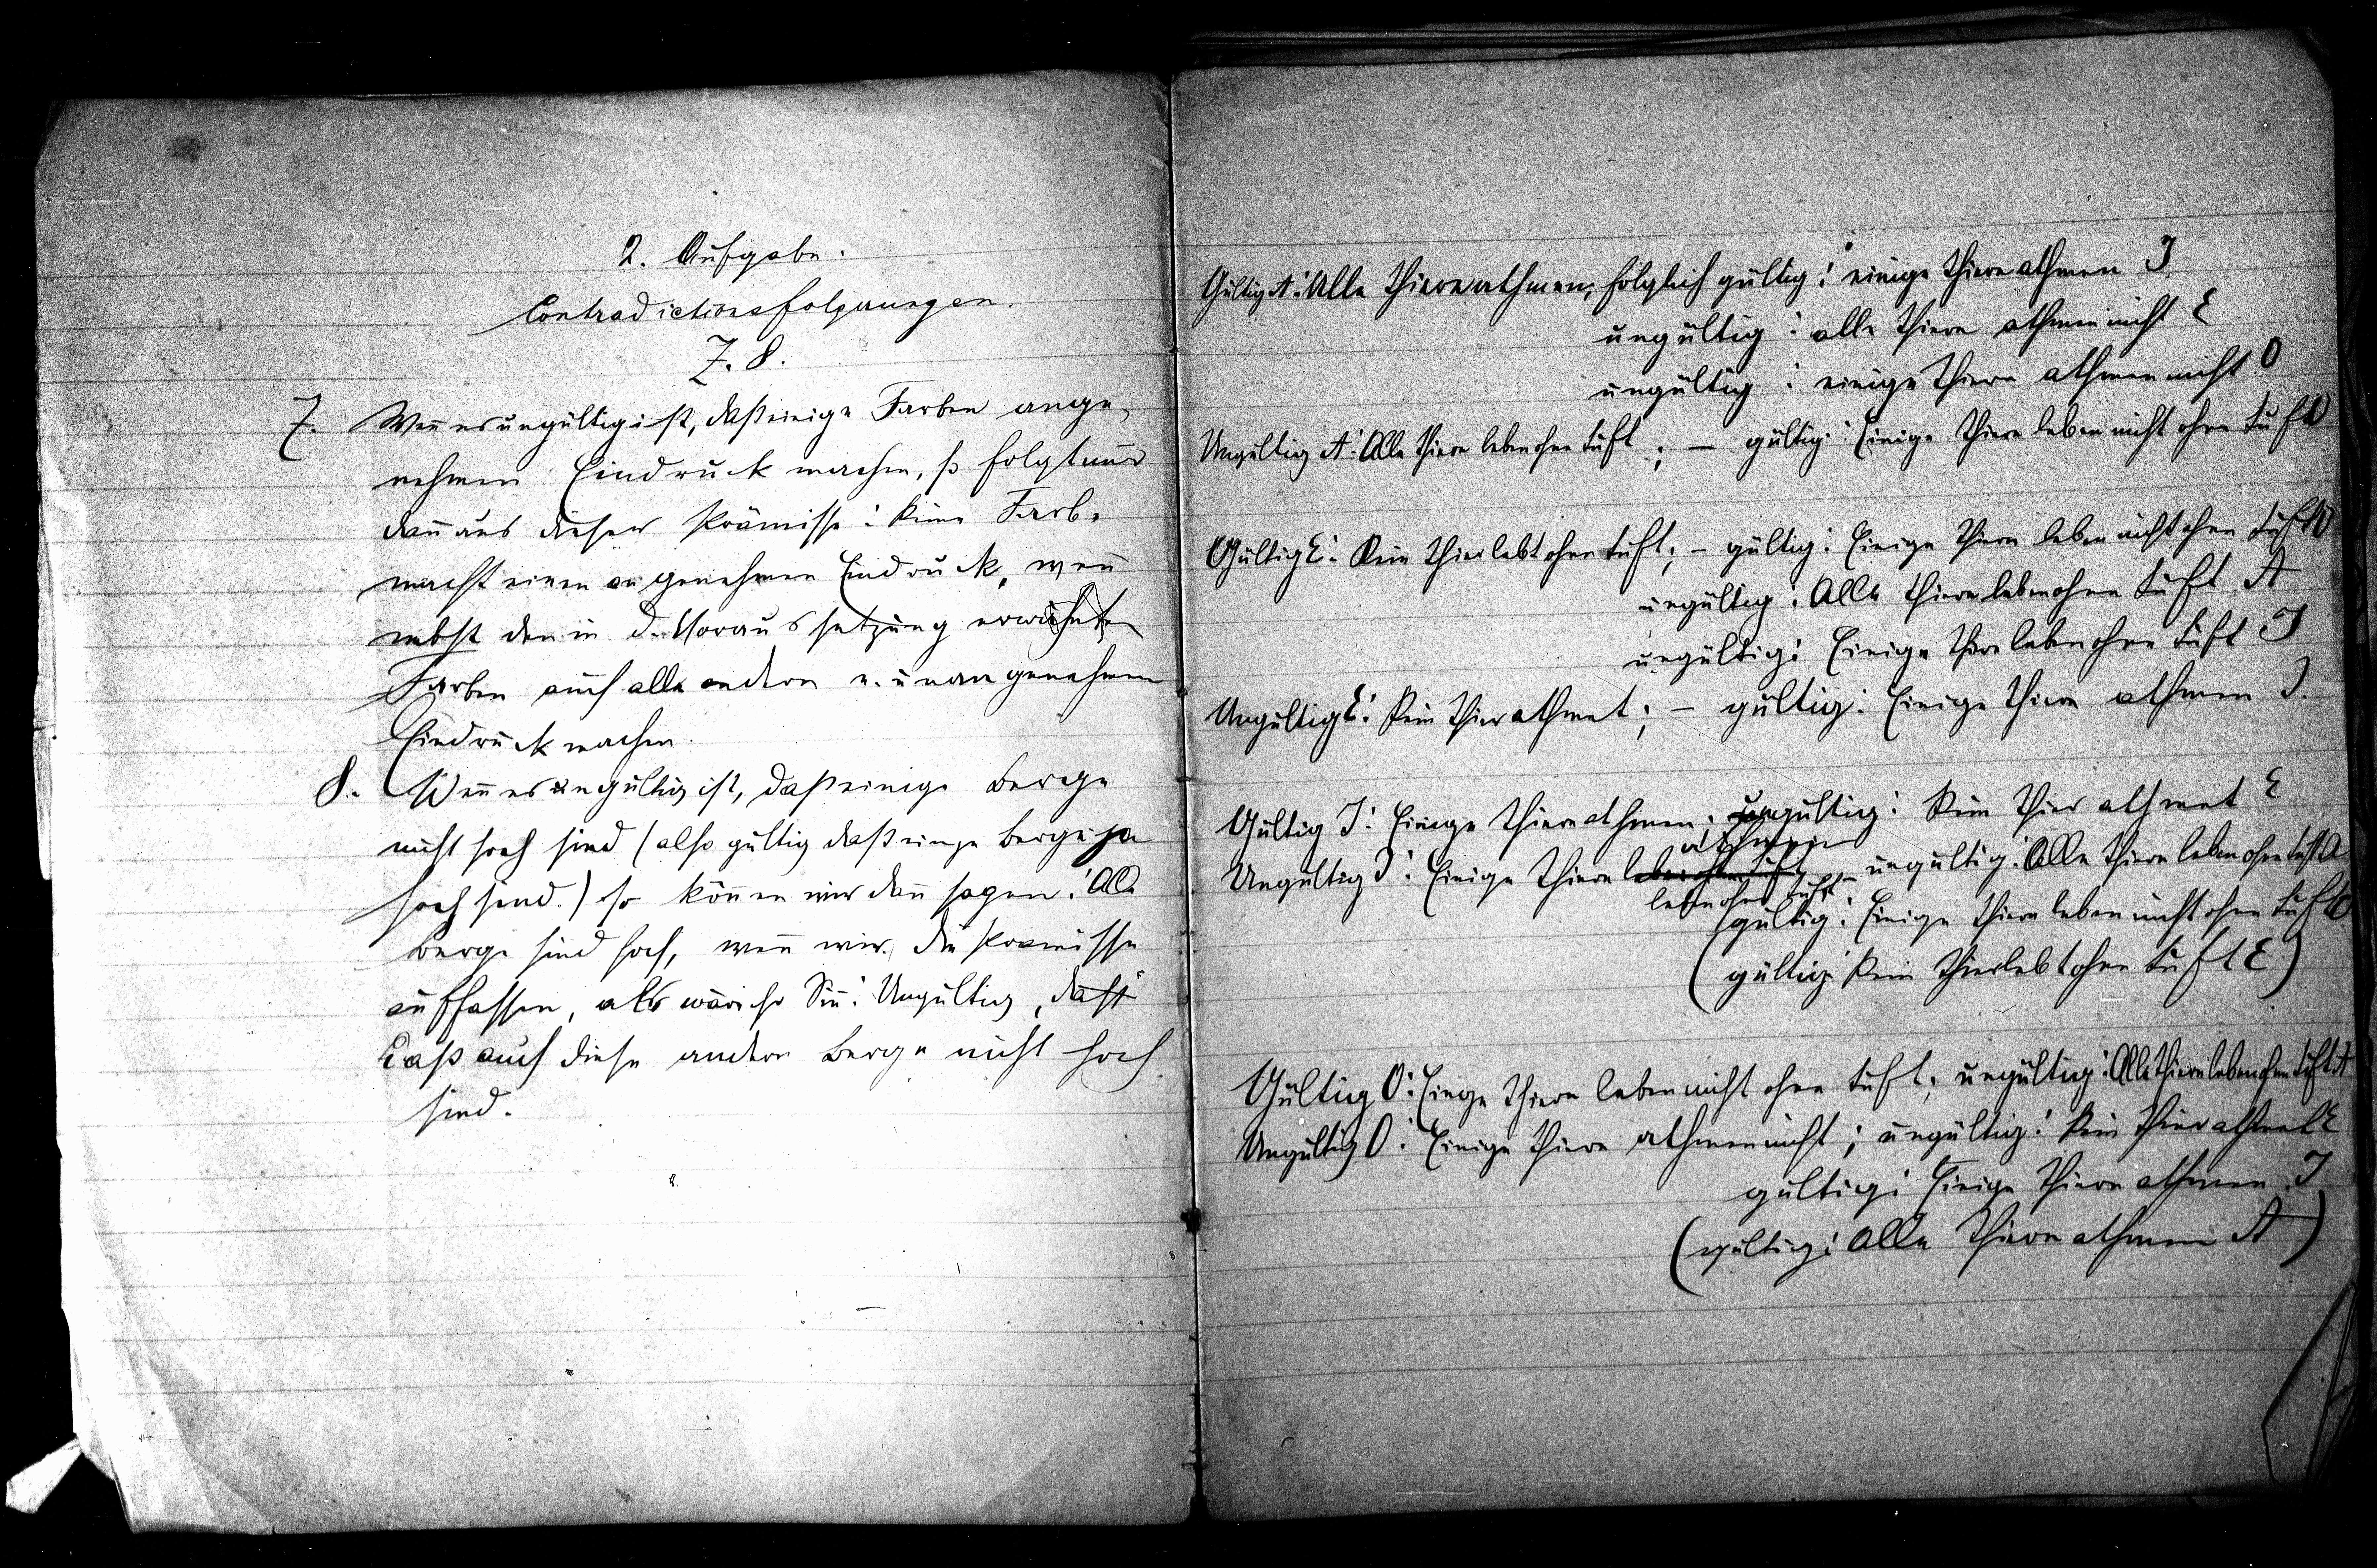 2. Aufgabe.
Contradictionsfolgerungen.
7. 8.
7. Weñ es ungültig ist, daß einige Farben ange-
nehmen Eindruck machen, so folgt nur
dañ aus dieser Prämisse: Keine Farbe
macht einen angenehmen Eindruck, weñ
nebst den in d. Voraussetzung erwähnten
Farben auch alle andern u. unangenehmen
Eindruck machen.
8. Weñ es ungültig ist, daß einige Berge
nicht hoch sind (also gültig daß einige Berge ja
hoch sind.) so köñen wir dañ sagen: Alle
Berge sind hoch, weñ wir die Praemisse
auffassen, als wäre ihr Siñ: Ungültig, daß
daß auch diese andern Berge nicht hoch
sind.
Gültig A: Alle Thiere athmen, folglich gültig: einige Thiere athmen I
ungültig: alle Thiere athmen nicht E
ungültig: einige Thiere athmen nicht O
Ungültig A: Alle Thiere leben ohne Luft; – gültig: Einige Thiere leben nicht ohne Luft O
Gültig E: Kein Thier lebt ohne Luft; – gültig: Einige Thiere leben nicht ohne Luft O
ungültig: Alle Thiere leben ohne Luft A
ungültig: Einige Thiere leben ohne Luft I
Ungültig E: Kein Thier athmet; – gültig: Einige Thiere athmen I.
Gültig I: Einige Thiere athmen; ungültig: Kein Thier athmet E
athmen
Ungültig I: Einige Thiere leben ohne Luft – ungültig: Alle Thiere leben ohne Luft A
leben ohne Luft
gültig: Einige Thiere leben nicht ohne Luft O
(gültig: Kein Thier lebt ohne Luft E)
Gültig O: Einige Thiere leben nicht ohne Luft; ungültig: Alle Thiere leben ohne Luft A
Ungültig O: Einige Thiere athmen nicht; ungültig: Kein Thier athmet E
gültig: Einige Thiere athmen I
(gültig: Alle Thiere athmen A)